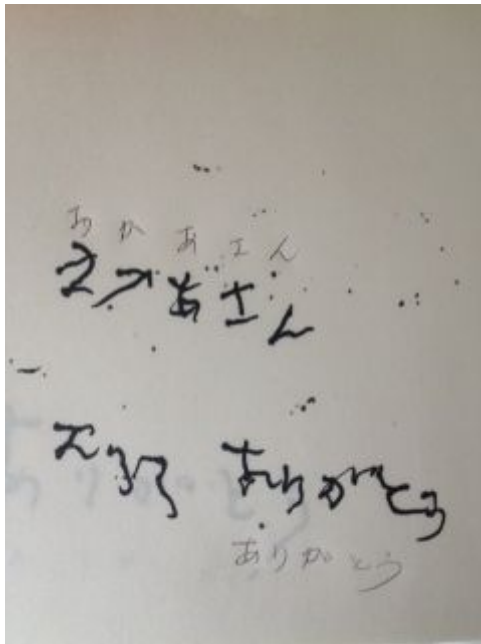 おかあさん
おかあさん
ありがとう
ありがとう